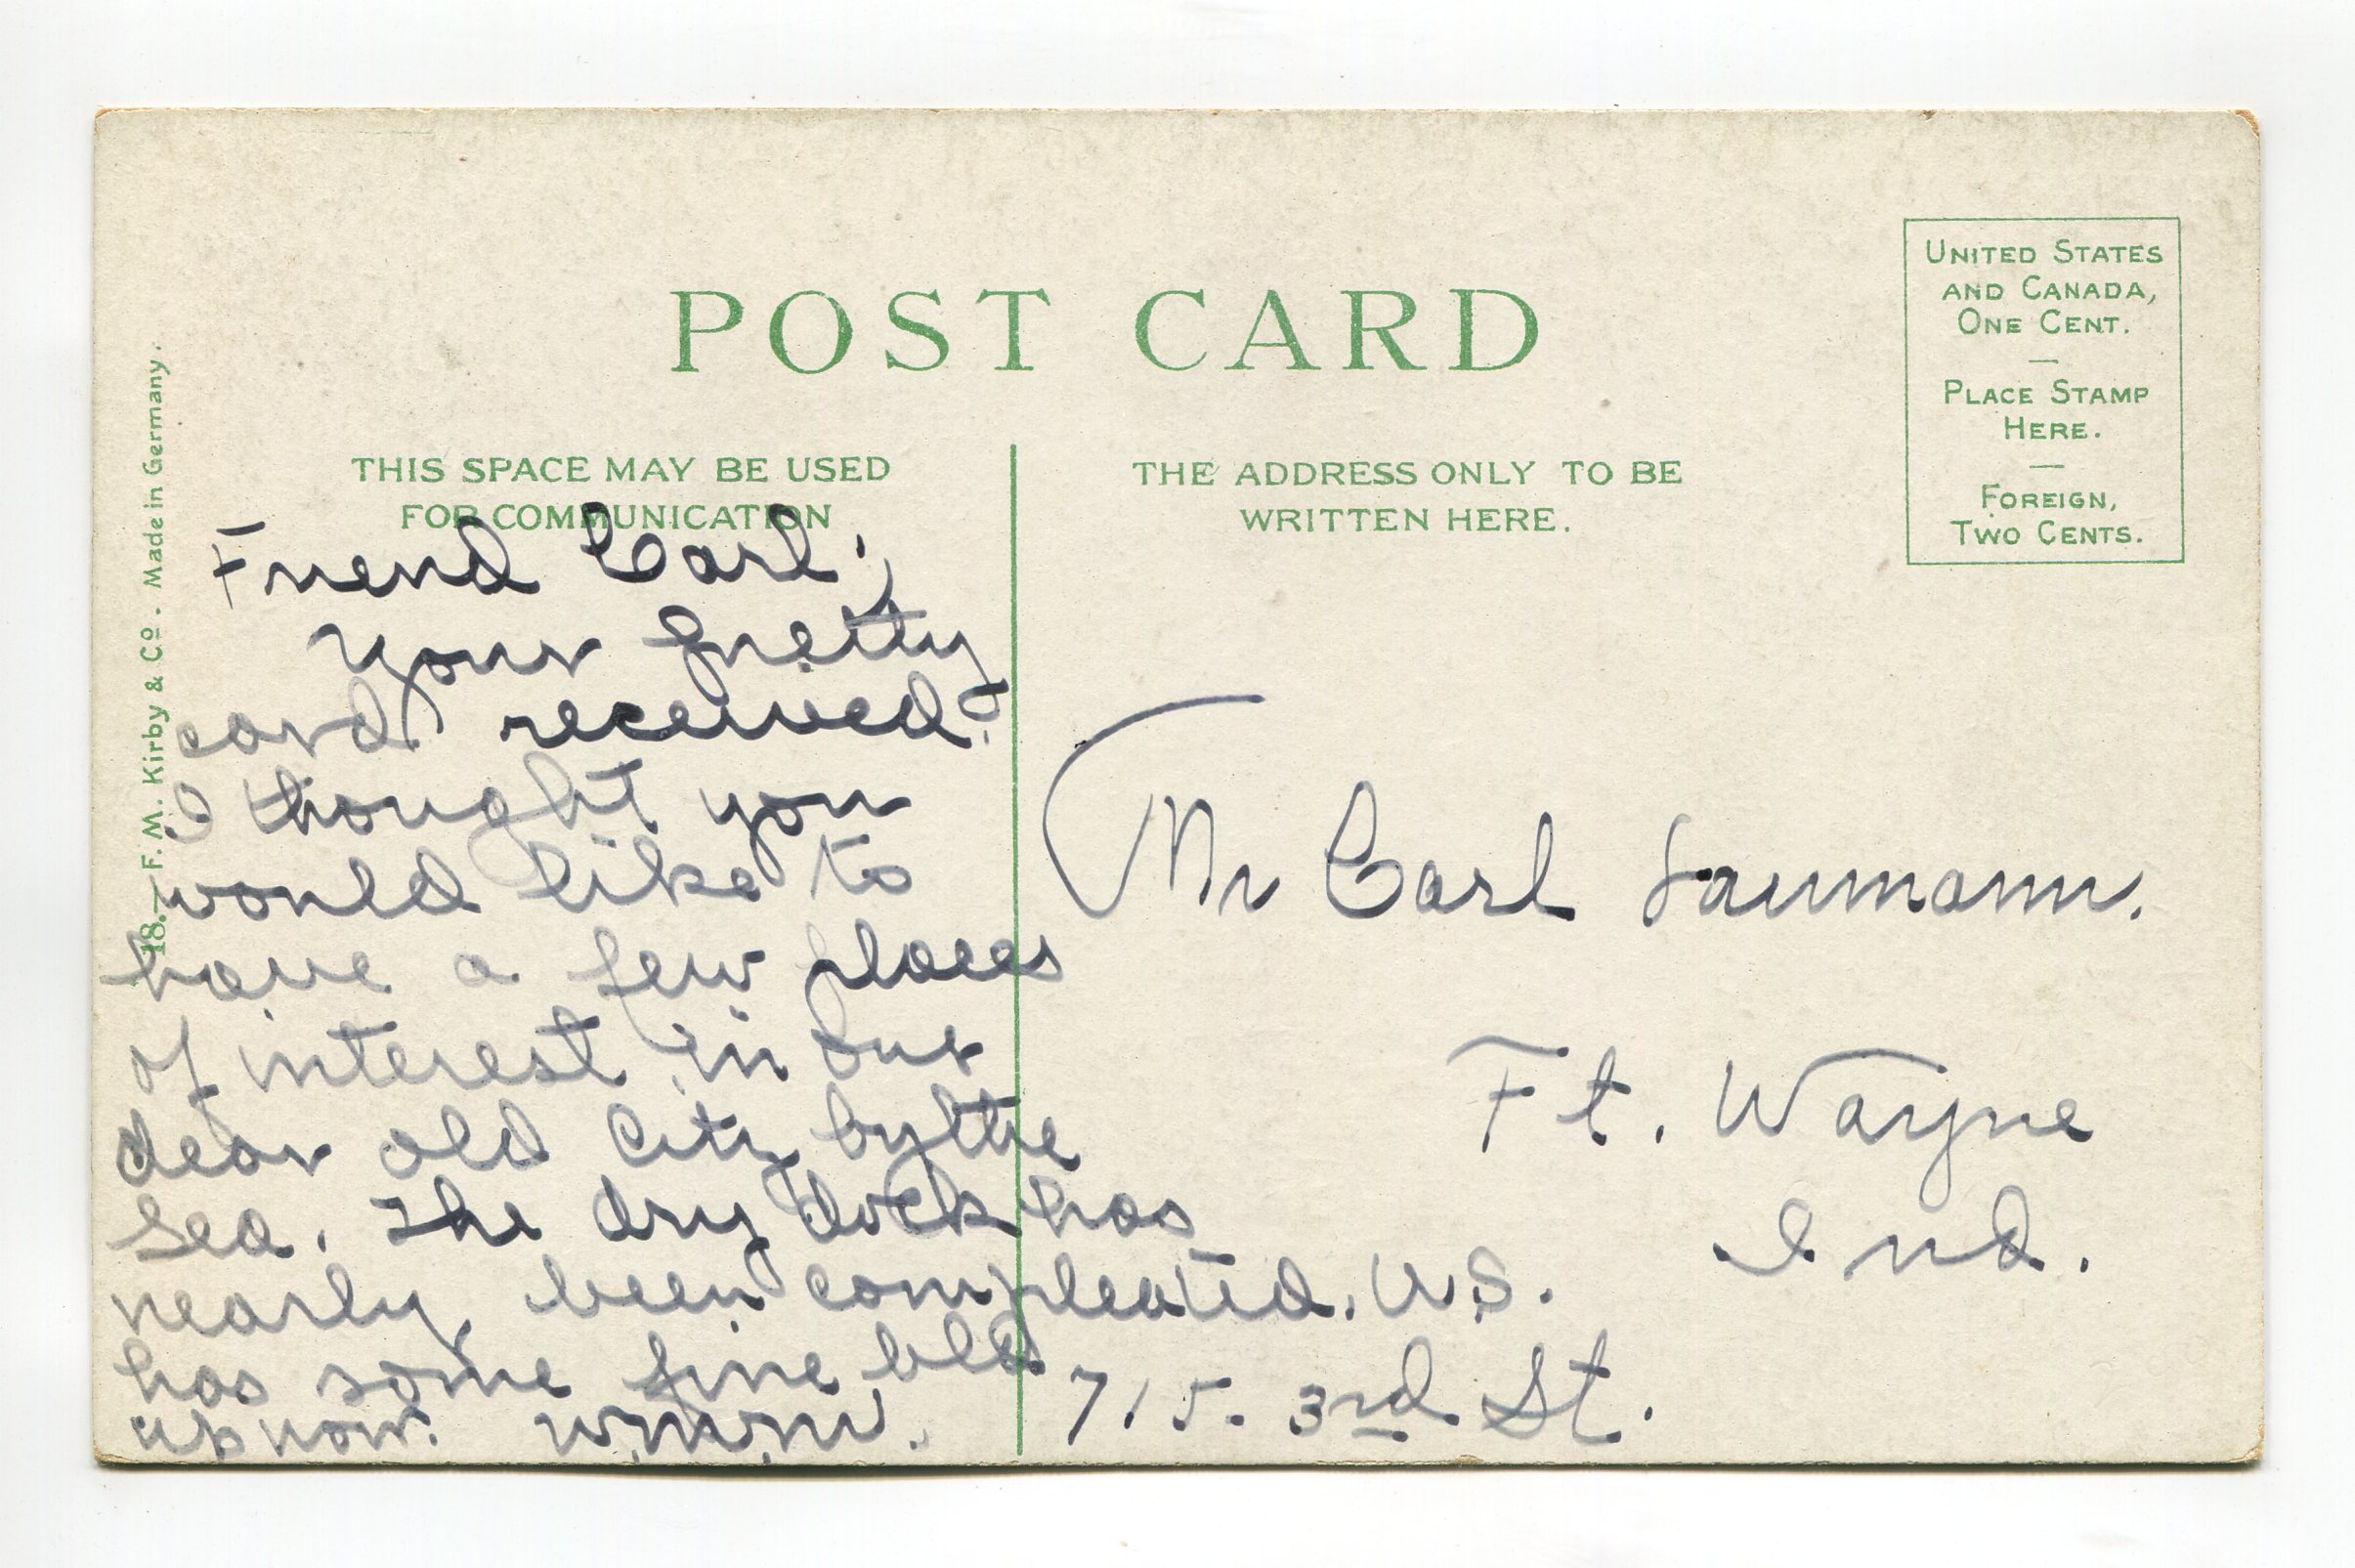 POST CARD
UNITED STATES
AND CANADA,
ONE CENT.
PLACE STAMP
HERE.
FOREIGN,
TWO CENTS.
THIS SPACE MAY BE USED
FOR COMMUNICATION
THE ADDRESS ONLY TO BE
WRITTEN HERE.
18.—F. M. Kirby & Co. Made in Germany.
Friend Carl;
Your pretty
card received.
I thought you
would like to
have a few places
of interest in our
dear old City by the
Sea. The dry dock has
nearly been compleated. U.S.
has some fine bld
up now.
Mr Carl
Ft. Wayne
Ind.
715. 3rd St.